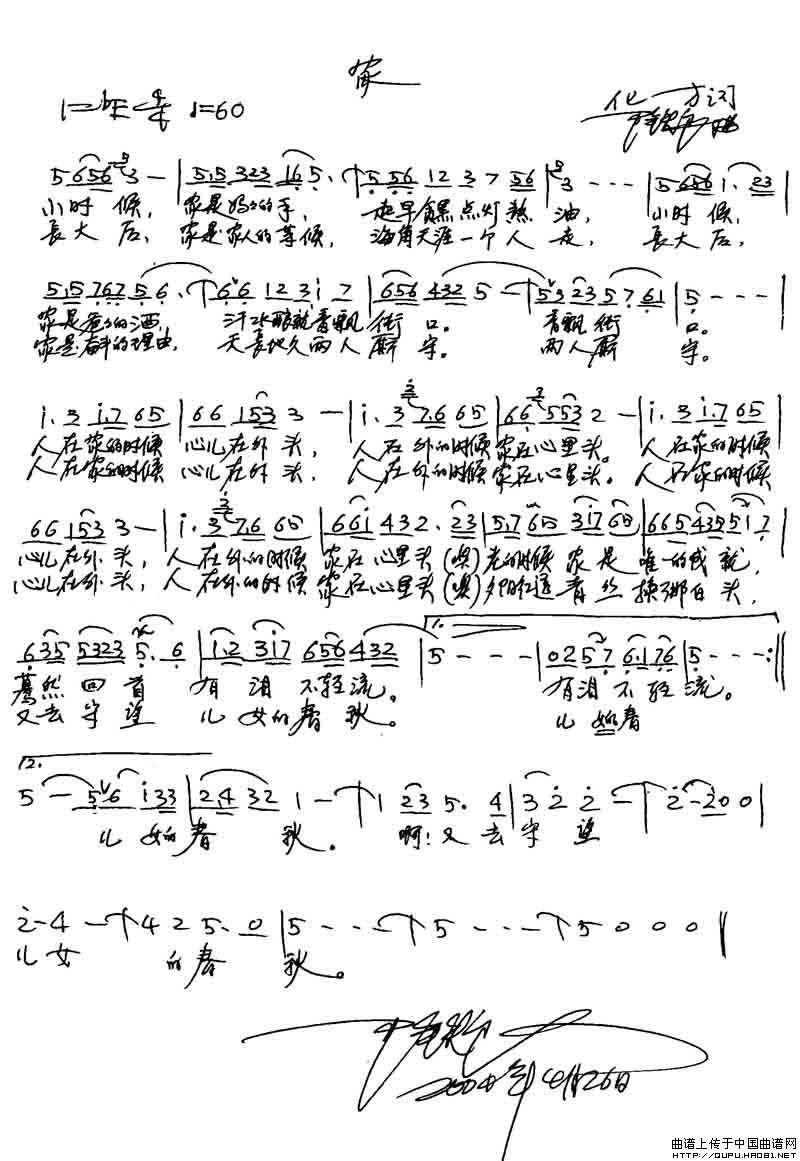 家
1=bE 4/4 ♩=60
词
曲
5 6 5 6 3 - | 5. 5 3 2 3 1 6 5. | 5 5 6 1 2 3 7 5 6 | 3 - - - | 5 6 5 6 1. 2 3
小时候, 家是妈妈的手, 起早贪黑点灯熬油, 小时候,
長大后, 家是家人的等候, 海角天涯一个人走, 長大后,
5. 5 7 6 7 5 6. | 6 6 1 2 3 i 7 | 6 5 6 4 3 2 5 - | 5 3 2 3 5 7 6 1 | 5 - - - |
家是爸爸的酒, 汗水酿就香飘街口。 香飘街口。
家是奋斗的理由, 天長地久两人厮守。 两人厮守。
i. 3 i. 7 6 5 | 6 6 1 5 3 3 - | i. 3 7. 6 6 5 | 6 6 5 5 3 2 - | i. 3 i. 7 6 5
人在家的时候 心儿在外头, 人在外的时候家在心里头。 人在家的时候
人在家的时候 心儿在外头, 人在外的时候家在心里头。 人在家的时候
6 6 1 5 3 3 - | i. 3 7. 6 6 5 | 6 6 i 4 3 2. 2 3 | 5. 7 6 5 3 i 7 6 5 | 6 6 5 4 3 5 5 i 7
心儿在外头, 人在外的时候 家在心里头(噢)老的时候 家是唯一的成就,
心儿在外头, 人在外的时候 家在心里头(噢)夕阳红 青丝换那白头,
6 3 5 5 3 2 3 5. 6 | i. 2 3 i 7 6 5 6 4 3 2 | 5 - - - | 0 2 5 7 6. 1 7 6 | 5 - - - :||
1.
蓦然回首 有泪不轻流。 有泪不轻流。
又去守望 儿女的春秋。 儿女的春
12.
5 - 5 6 i 3 3 | 2. 4 3 2 1 - | 1 2 3 5. 4 | 3 2 2 - | 2 - 2 0 0 |
儿女的春秋。 啊!又去守望
2 - 4 - | 4 2 5. 0 | 5 - - - | 5 - - - | 5 0 0 0 ||
儿女的春秋。
2004年4月26日
曲谱上传于中国曲谱网
HTTP://QUPU.HAO81.NET